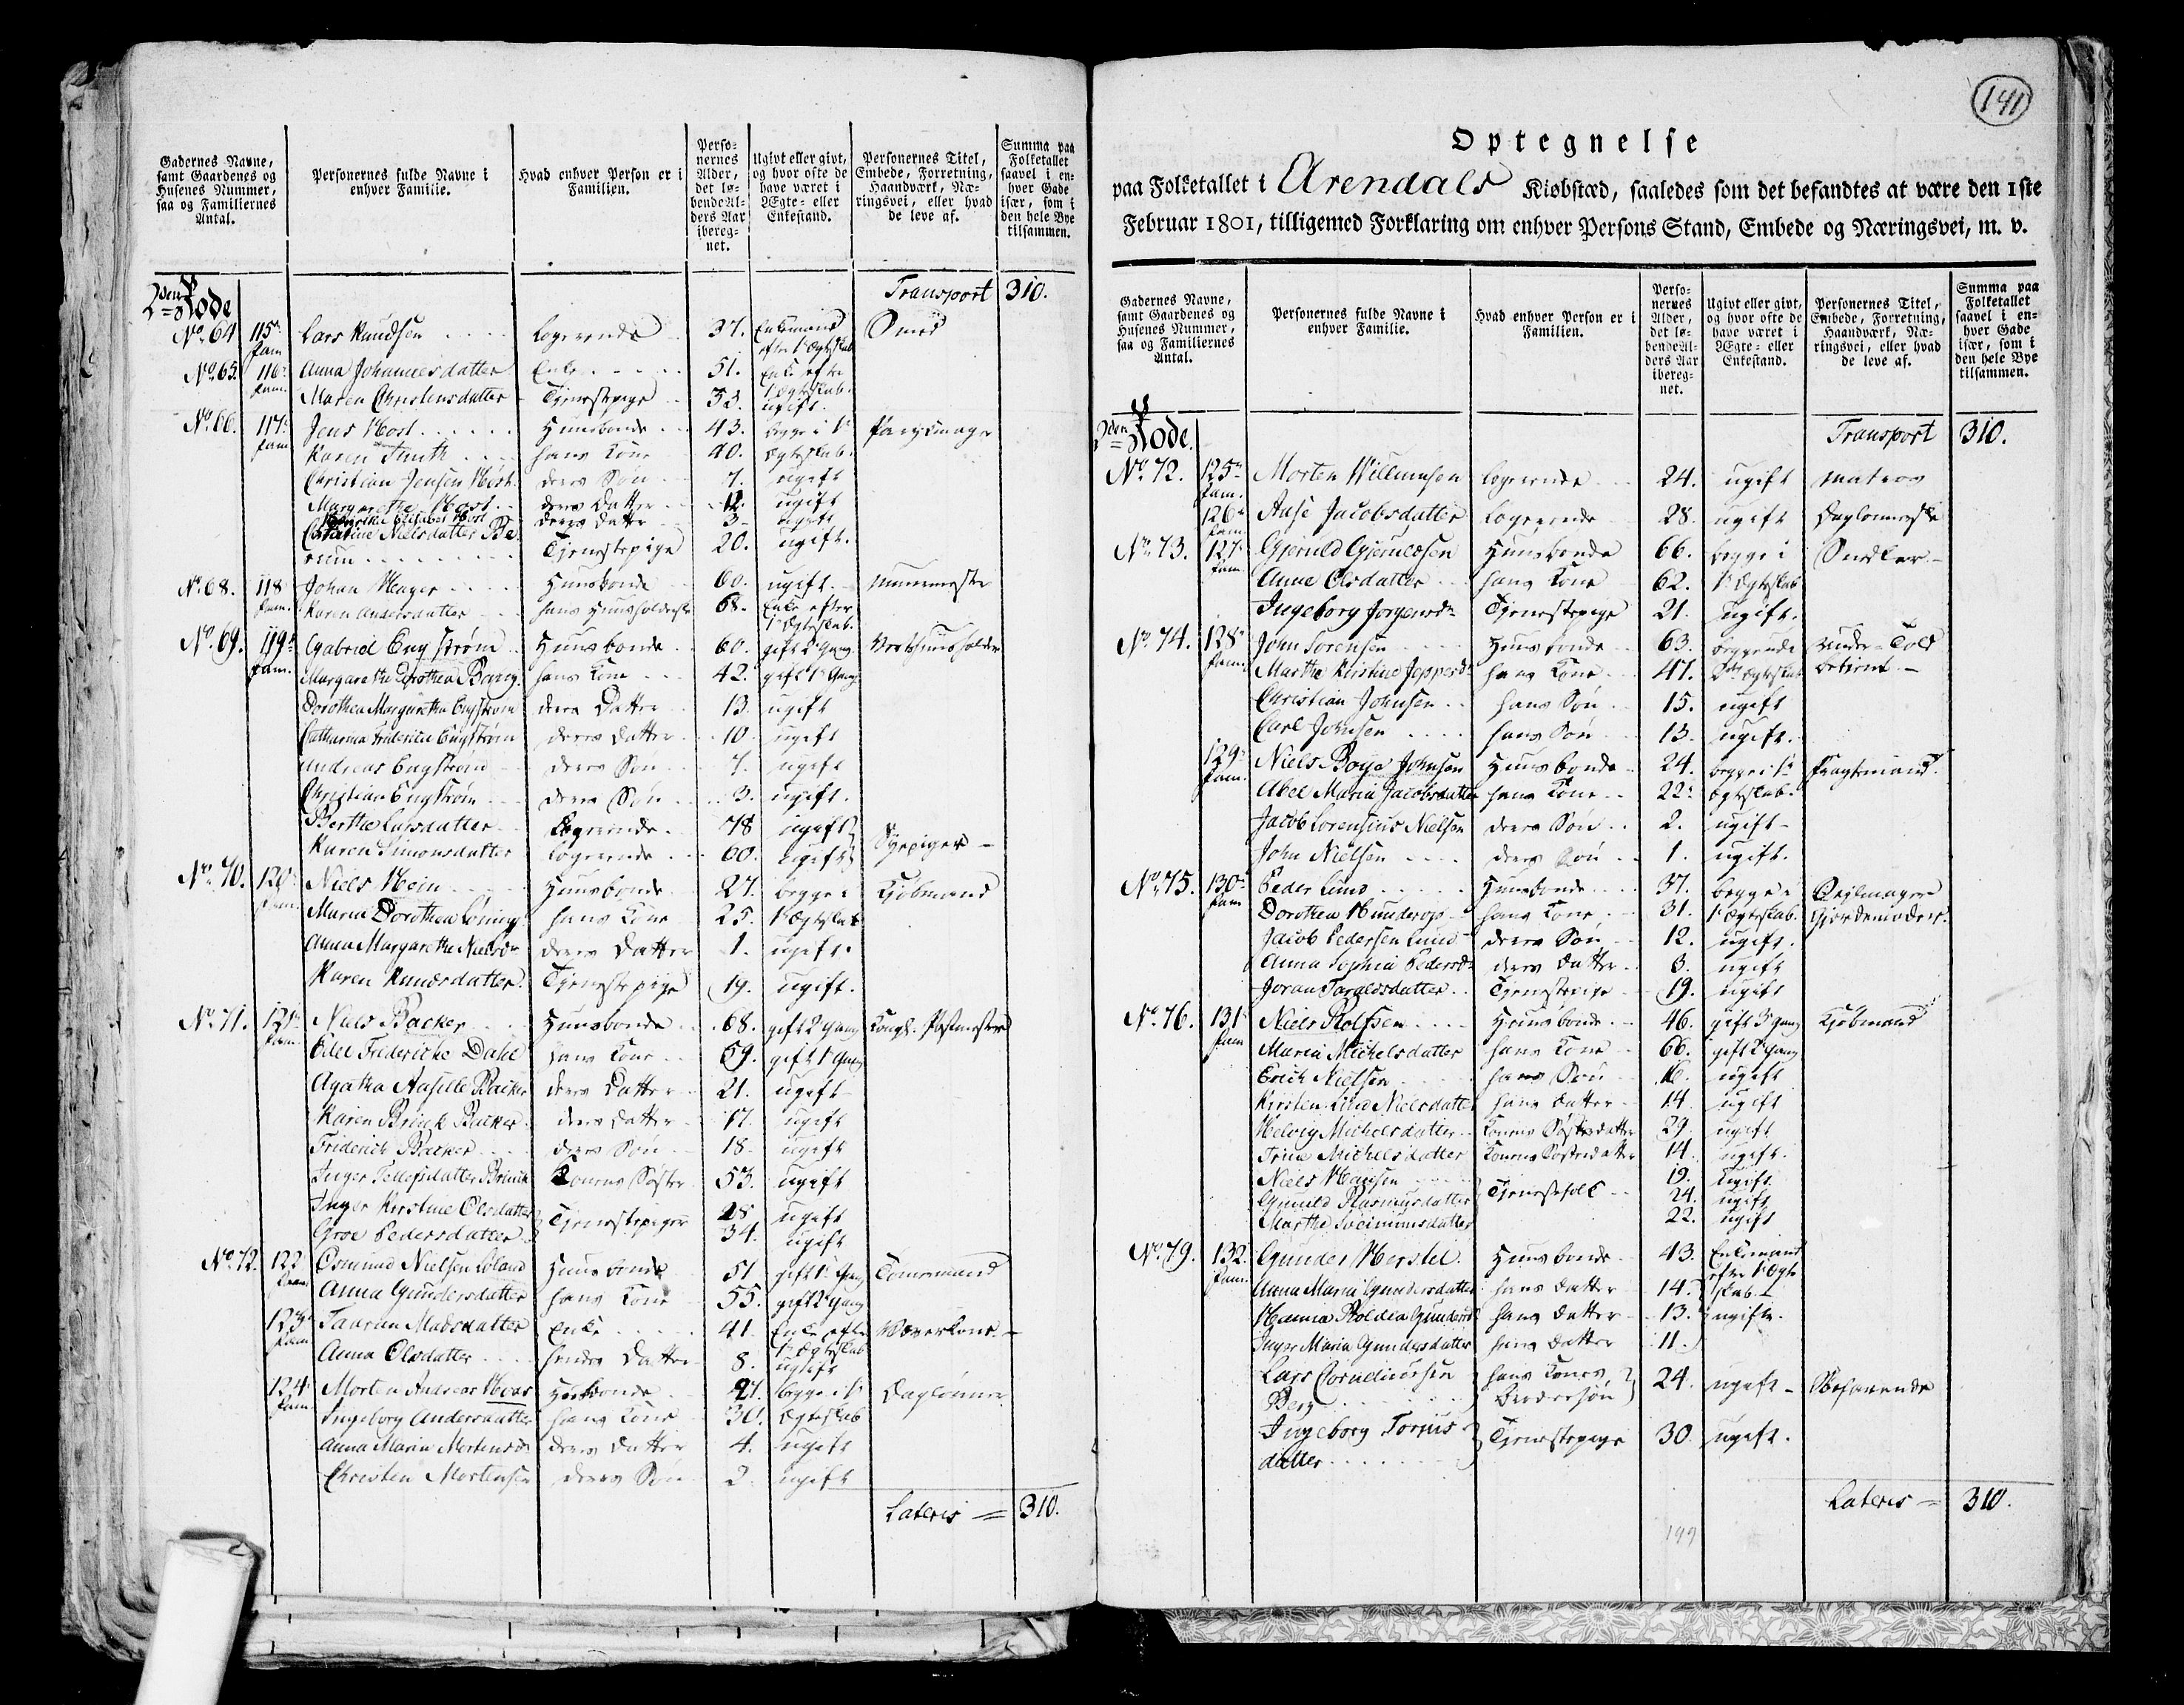 Gadernes Navne, samt Gaardenes og Husenes Nummer, saa og Familiernes Antal.
Personernes fulde Navne i enhver Familie.
Hvad enhver Person er i Familien.
Personernes Alder, det løbende Alders Aar iberegnet.
Ugivt eller givt, og hvor ofte de have været i Ægte- eller Enkestand.
Personernes Titel, Embede, Forretning, Haandværk, Næringsvei, eller hvad de leve af.
Summa paa Folketallet saavel i enhver Gade især, som i den hele Bye tilsammen.
2den Rode Transport 310.
No. 64 115de fam Lars Knudsen logerende 37. Enkemand efter 1. Ægteskab Smed
No. 65. 116. fam. Anna Johannesdatter Enke 51. Enke efter 1. Ægteskab.
Maren Christensdatter Tjenestepige 33. ugift.
No. 66. 117. fam Jens Høst Huusbonde 43. begge i 1. Parykmager
Karen Smith hans Kone 40. Ægteskab.
Christian Jensen Høst deres Søn 7. ugift
Margarethe Høst deres Datter 12. ugift
Elisabet Høst deres Datter 3 ugift
Nielsdatter Berum Tjenestepige 20. ugift.
No. 68. 118 fam. Johan Meyer Huusbonde 60. ugift. Muurmester
Karen Andersdatter hans Huusholderske 68. Enke efter 1. Ægteskab.
No. 69. 119de fam. Gabriel Engstrøm Huusbonde 60. gift 2. Gang Vertshuusholder
Margarethe Dorothea Bang. hans Kone 42. gift 1. Gang
Dorothea Margaretha Engstrøm deres Datter 13. ugift
Catharina Friderica Engstrøm deres Datter 10. ugift
Andreas Engstrøm deres Søn 7. ugift
Christian Engstrøm deres Søn 3. ugift.
Berthe Larsdatter logerende 78 ugift
Karen Simonsdatter logerende 60. ugift Syepiger
No. 70. 120. fam. Niels Hein Huusbonde 27. begge i Kjøbmand
Maria Dorothea Løning hans Kone 25. 1. Ægteskab
Anna Margarethe Nielsdr deres Datter 1. ugift.
Karen Knudsdatter. Tjenestepige 19. ugift.
No. 71. 121. fam. Niels Backer Huusbonde 68. gift 2 Gang Kongl. Postmester
Edel Fredericke Dahl hans Kone 59. gift 1. Gang
Agatha Backer deres Datter 21. ugift
Karen Brinck Backer deres Datter 17. ugift
Friderich Backer deres Søn 18. ugift
Inger Tellefsdatter Brinck Konens Søster 53. ugift
Inger Kirstine Olsdatter Tjenestepiger 28 ugift
Groe Pedersdatter 34. ugift
No. 72. 122 fam. Osmund Nielsen Løland Huusbonde 51 gift 1. Gang Tømmermand
Anna Gundersdatter hans Kone 55. gift 2 Gang
123. fam Taaran Madsdatter Enke 41. Enke efter 1. Ægteskab Væverkone
Anna Olsdatter hendes Datter 8. ugift
124. fam. Morten Andreas Moss Huusbonde 27. begge i 1. Daglønner
Ingeborg Andersdatter hans Kone 30. Ægteskab
Anna Maria Mortensd. deres Datter 4. ugift
Christen Mortensen deres Søn 2. ugift
Lateris = 310.
141
Optegnelse
paa Folketallet i Arendals Kiøbstæd, saaledes som det befandtes at være den 1ste
Februar 1801, tilligemed Forklaring om enhver Persons Stand, Embede og Næringsvei, m. v.
Gadernes Navne, samt Gaardenes og Husenes Nummer, saa og Familiernes Antal.
Personernes fulde Navne i enhver Familie.
Hvad enhver Person er i Familien.
Personernes Alder, det løbende Alders Aar iberegnet.
Ugivt eller givt, og hvor ofte de have været i Ægte- eller Enkestand.
Personernes Titel, Embede, Forretning, Haandværk, Næringsvei, eller hvad de leve af.
Summa paa Folketallet saavel i enhver Gade især, som i den hele Bye tilsammen.
2den Rode. Transport 310.
No. 72. 125de fam. Morten Willumsen logerende 24. ugift Matros
126de fam. Aase Jacobsdatter logerende 28. ugift
No. 73. 127. fam. Gjeruld Gjeruldsen Huusbonde 66. begge i Snedker
Anna Olsdatter hans Kone 62. 1. Ægteskab
Ingeborg Jørgensdr Tjenestepige 21. ugift.
No. 74. 128de fam. John Sørensen Huusbonde 63. begge i Under-Told
Marthe Kirstine Jeppesdr hans Kone 47. 2det Ægteskab betient
Christian Johnsen hans Søn 15. ugift
Carl Johnsen hans Søn 13. ugift.
129de fam. Niels Boye Johnsen Huusbonde 24. begge i 1. Fragtemand.
Abel Maria Jacobsdatter hans Kone 22. Ægteskab.
Jacob Lorensius Nielsen deres Søn 2. ugift
John Nielsen deres Søn 1. ugift.
No. 75. 130de fam Peder Lund Huusbonde 37. begge i Seilmager
Dorothea hans Kone 31. 1. Ægteskab. Gjordemoder.
Jacob Pedersen Lund deres Søn 12. ugift.
Anna Sophia Pedersdr deres Datter 3. ugift
Joran Taraldsdatter Tjenestepige 19. ugift
No. 76. 131 fam Niels Rolfsen Huusbonde 46. gift 3. Gang Kjøbmand
Maria Michelsdatter hans Kone 66. gift 2 Gang
Erich Nielsen hans Søn 16. ugift
Kirsten Lind Nielsdatter hans Datter 14 ugift
Helvig Michelsdatter Konens Søsterdatter 29. ugift
Trine Michelsdatter Konens Søsterdatter 14. ugift.
Niels Hansen 19. ugift
Gunild Rasmusdatter Tjenestefolk 24. ugift
Marthe Sveinumsdatter 22. ugift
No. 79. 132. fam. Gunder Herstel. Huusbonde 43. Enkemand efter 1. Ægteskab
Anna Maria Gundersdatter hans Datter 14.
Hanna Gundersd. hans Datter 13. ugifte.
Inger Maria Gundersdatter hans Datter 11.
Lars Corneliussen hans Kones 24. ugift
Berg Brodersøn Søefarende
Ingeborg Torjus- Tjenestepige 30 ugift.
datter
Lateris = 310.
199